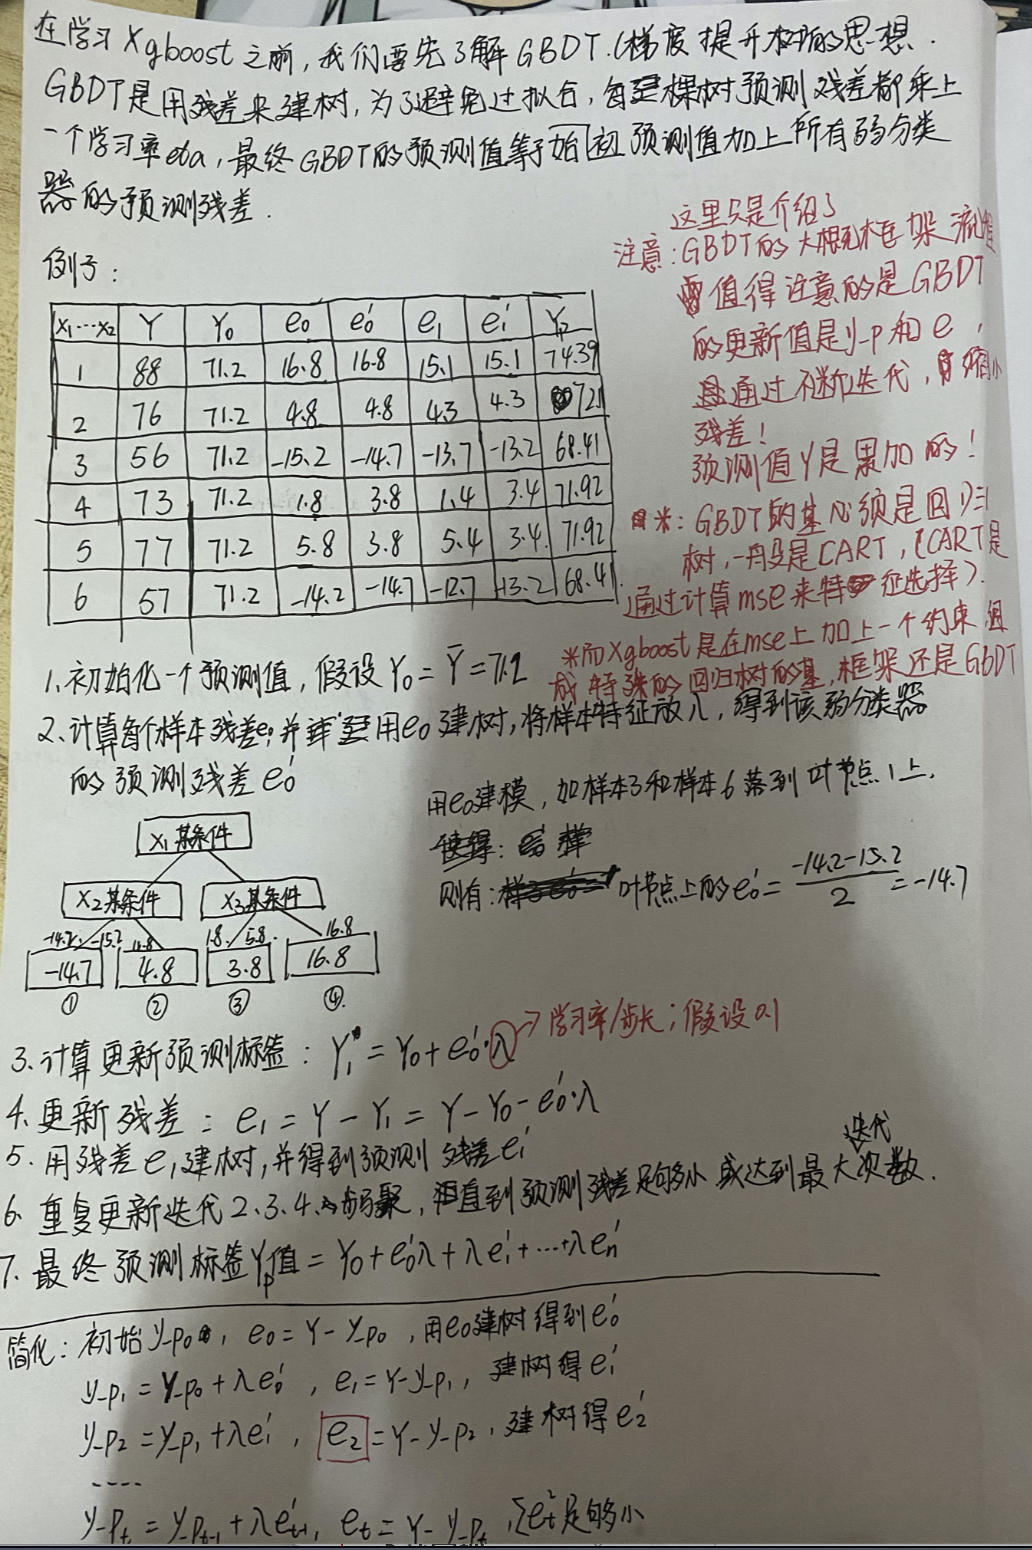 在学习Xgboost之前,我们要先了解GBDT.(梯度提升树)的思想.
GBDT是用残差来建树,为了避免过拟合,每建棵树预测残差都乘上
一个学习率eta,最终GBDT的预测值等于始初预测值加上所有弱分类
器的预测残差.
例子:
x₁…x₂ Y Y₀ e₀ e₀' e₁ e₁' Y₂
1 88 71.2 16.8 16.8 15.1 15.1 74.39
2 76 71.2 4.8 4.8 4.3 4.3 72.1
3 56 71.2 -15.2 -14.7 -13.7 -13.2 68.41
4 73 71.2 1.8 3.8 1.4 3.4 71.92
5 77 71.2 5.8 3.8 5.4 3.4 71.92
6 57 71.2 -14.2 -14.7 -12.7 -13.2 68.41
这里只是介绍了
注意:GBDT的大概框架流程
值得注意的是GBDT
的更新值是y-p和e,
通过不断迭代,缩小
残差!
预测值Y是累加的!
米:GBDT的基心须是回归
树,一般是CART,(CART是
通过计算mse来特征选择).
米而Xgboost是在mse上加上一个约束 组
成特殊的回归树的基,框架还是GBDT
1.初始化一个预测值,假设Y₀=Ȳ=71.2
2、计算每个样本残差e₀并用e₀建树,将样本特征放入,得到该弱分类器
的预测残差e₀'
用e₀建模,如样本3和样本6落到叶节点1上.
则有: 叶节点上的e₀'=(-14.2-15.2)/2=-14.7
X₁某条件
X₂某条件 X₃某条件
-14.2 -15.2 4.8 1.8 5.8 16.8
-14.7 4.8 3.8 16.8
① ② ③ ④
3.计算更新预测标签:Y₁=Y₀+e₀'·λ →学习率/步长;假设0.1
4.更新残差:e₁=Y-Y₁=Y-Y₀-e₀'·λ
5.用残差e₁建树,并得到预测残差e₁'
6.重复更新迭代2.3.4.5步骤,直到预测残差足够小或达到最大迭代次数.
7.最终预测标签Yp值=Y₀+e₀'λ+λe₁'+…+λeₙ'
简化:初始y-p₀,e₀=Y-y-p₀,用e₀建树得到e₀'
y-p₁=y-p₀+λe₀',e₁=Y-y-p₁,建树得e₁'
y-p₂=y-p₁+λe₁',e₂=Y-y-p₂,建树得e₂'
....
y-pₜ=y-pₜ₋₁+λe'ₜ₋₁,eₜ=Y-y-pₜ,Σeₜ²足够小